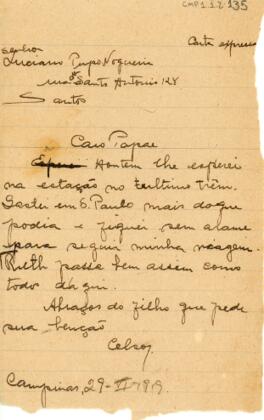 CMP 1.1.2 135
Carta expressa
Senhor
Luciano Pupo Nogueira
rua Sto Santo Antonio 128
Santos
Caro Papae
Hontem lhe esperei
na estação no ultimo trêm.
Gastei em S. Paulo mais do que
podia e fiquei sem arame
para seguir minha viagem.
Ruth passa bem assim como
todos daqui.
Abraços do filho que pede
sua benção
Celso.
Campinas, 29-II-1919.